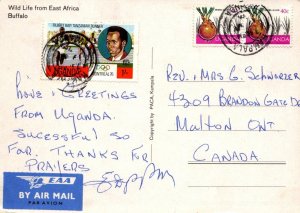 Wild Life from East Africa
Buffalo
FILBERT BAYI TANZANIAN RUNNER
MONTREAL 76
UGANDA
1/-
40c
UGANDA
KAMPALA
REV. & MRS G. SCHWARZER
4309 BRANDON GATE DR
MALTON ONT.
CANADA
LOVE & GREETINGS
FROM UGANDA.
SUCESSFUL SO
FAR. THANKS FOR
PRAYERS
Copyright by PACA, Kampala
EAA
BY AIR MAIL
PAR AVION